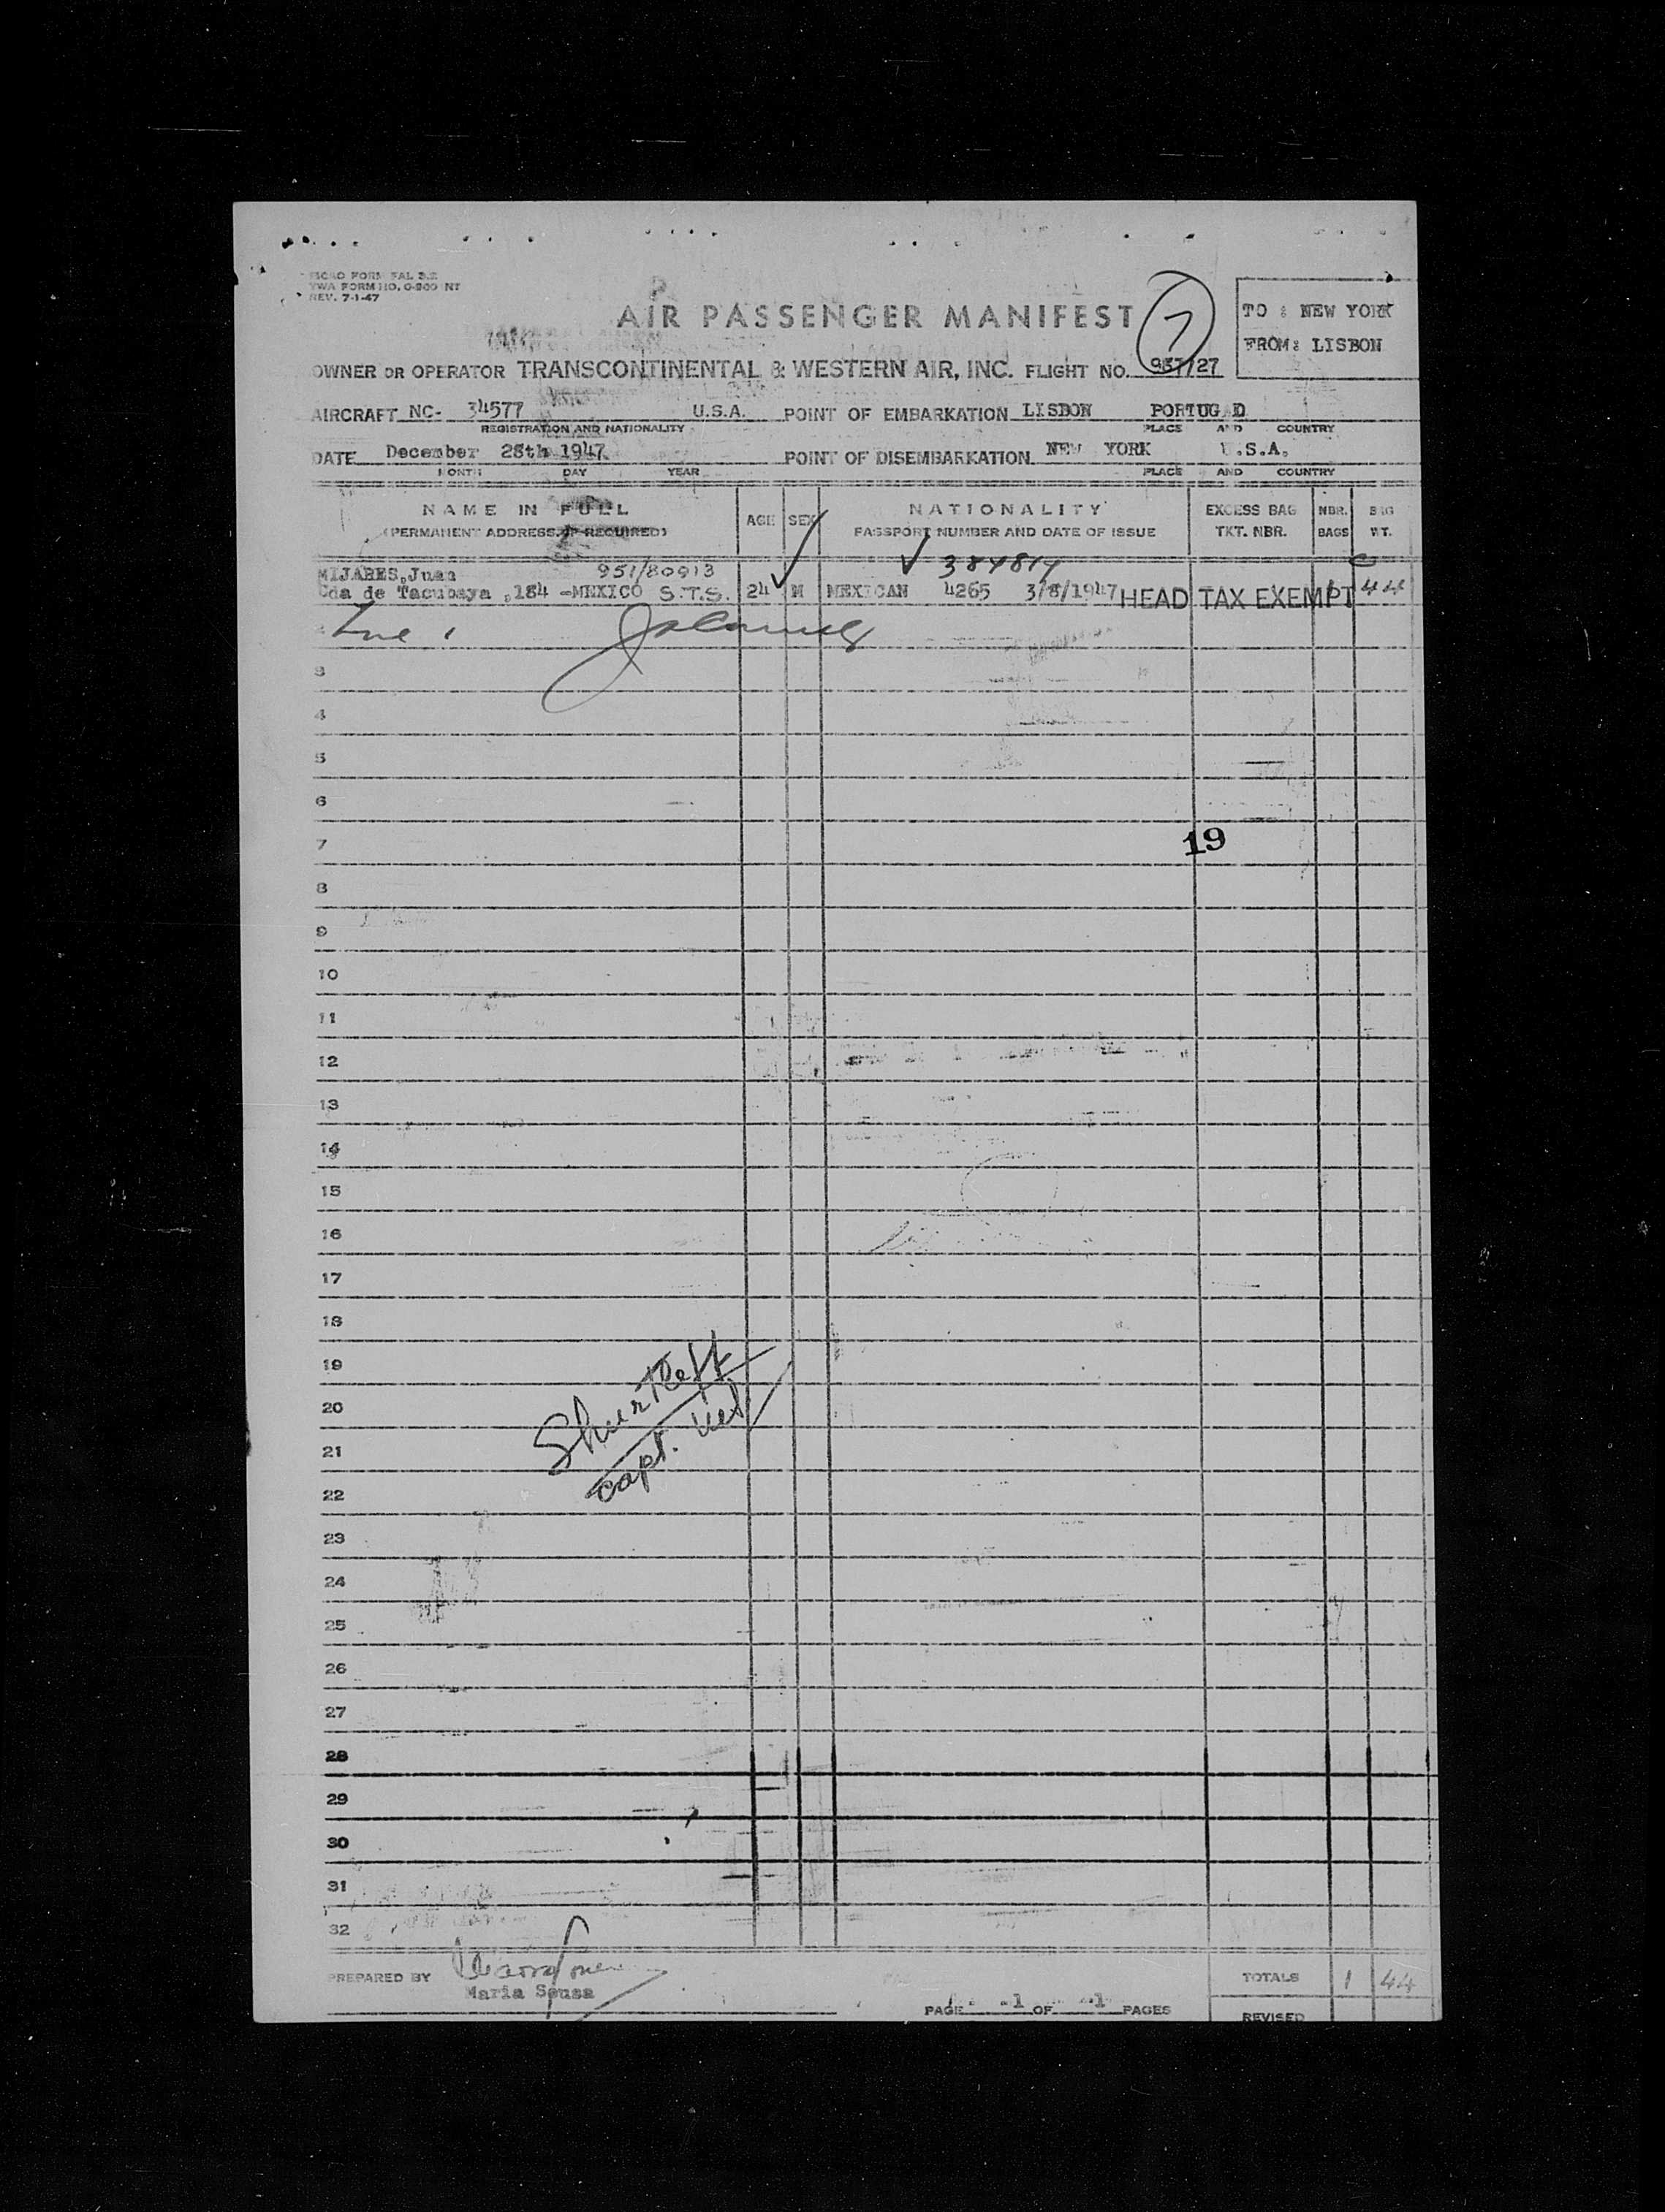 TWA FORM NO. 0-900 INT
REV. 7-1-47
AIR PASSENGER MANIFEST
7
TO : NEW YORK
FROM: LISBON
OWNER OR OPERATOR TRANSCONTINENTAL & WESTERN AIR, INC. FLIGHT NO. 937/27
AIRCRAFT NC- 34577 U.S.A. POINT OF EMBARKATION LISBON
REGISTRATION AND NATIONALITY PLACE AND COUNTRY
DATE December 28th 1947 POINT OF DISEMBARKATION NEW YORK U.S.A.
MONTH DAY YEAR PLACE AND COUNTRY
NAME IN FULL AGE SEX NATIONALITY EXCESS BAG NBR. BAG
(PERMANENT ADDRESS IF REQUIRED) PASSPORT NUMBER AND DATE OF ISSUE TKT. NBR. BAGS WT.
MIJARES,Juan 951/80913 384814
Cda de Tacubaya ,184 -MEXICO S.T.S. 24 M MEXICAN 4265 3/8/1947 HEAD TAX EXEMPT 44
3
4
5
6
7
19
8
9
10
11
12
13
14
15
16
17
18
19
Shurtleff
20
21
Capt.
22
23
24
25
26
27
28
29
30
31
32
PREPARED BY
Maria Sousa
TOTALS 1 44
PAGE 1 OF 1 PAGES
REVISED